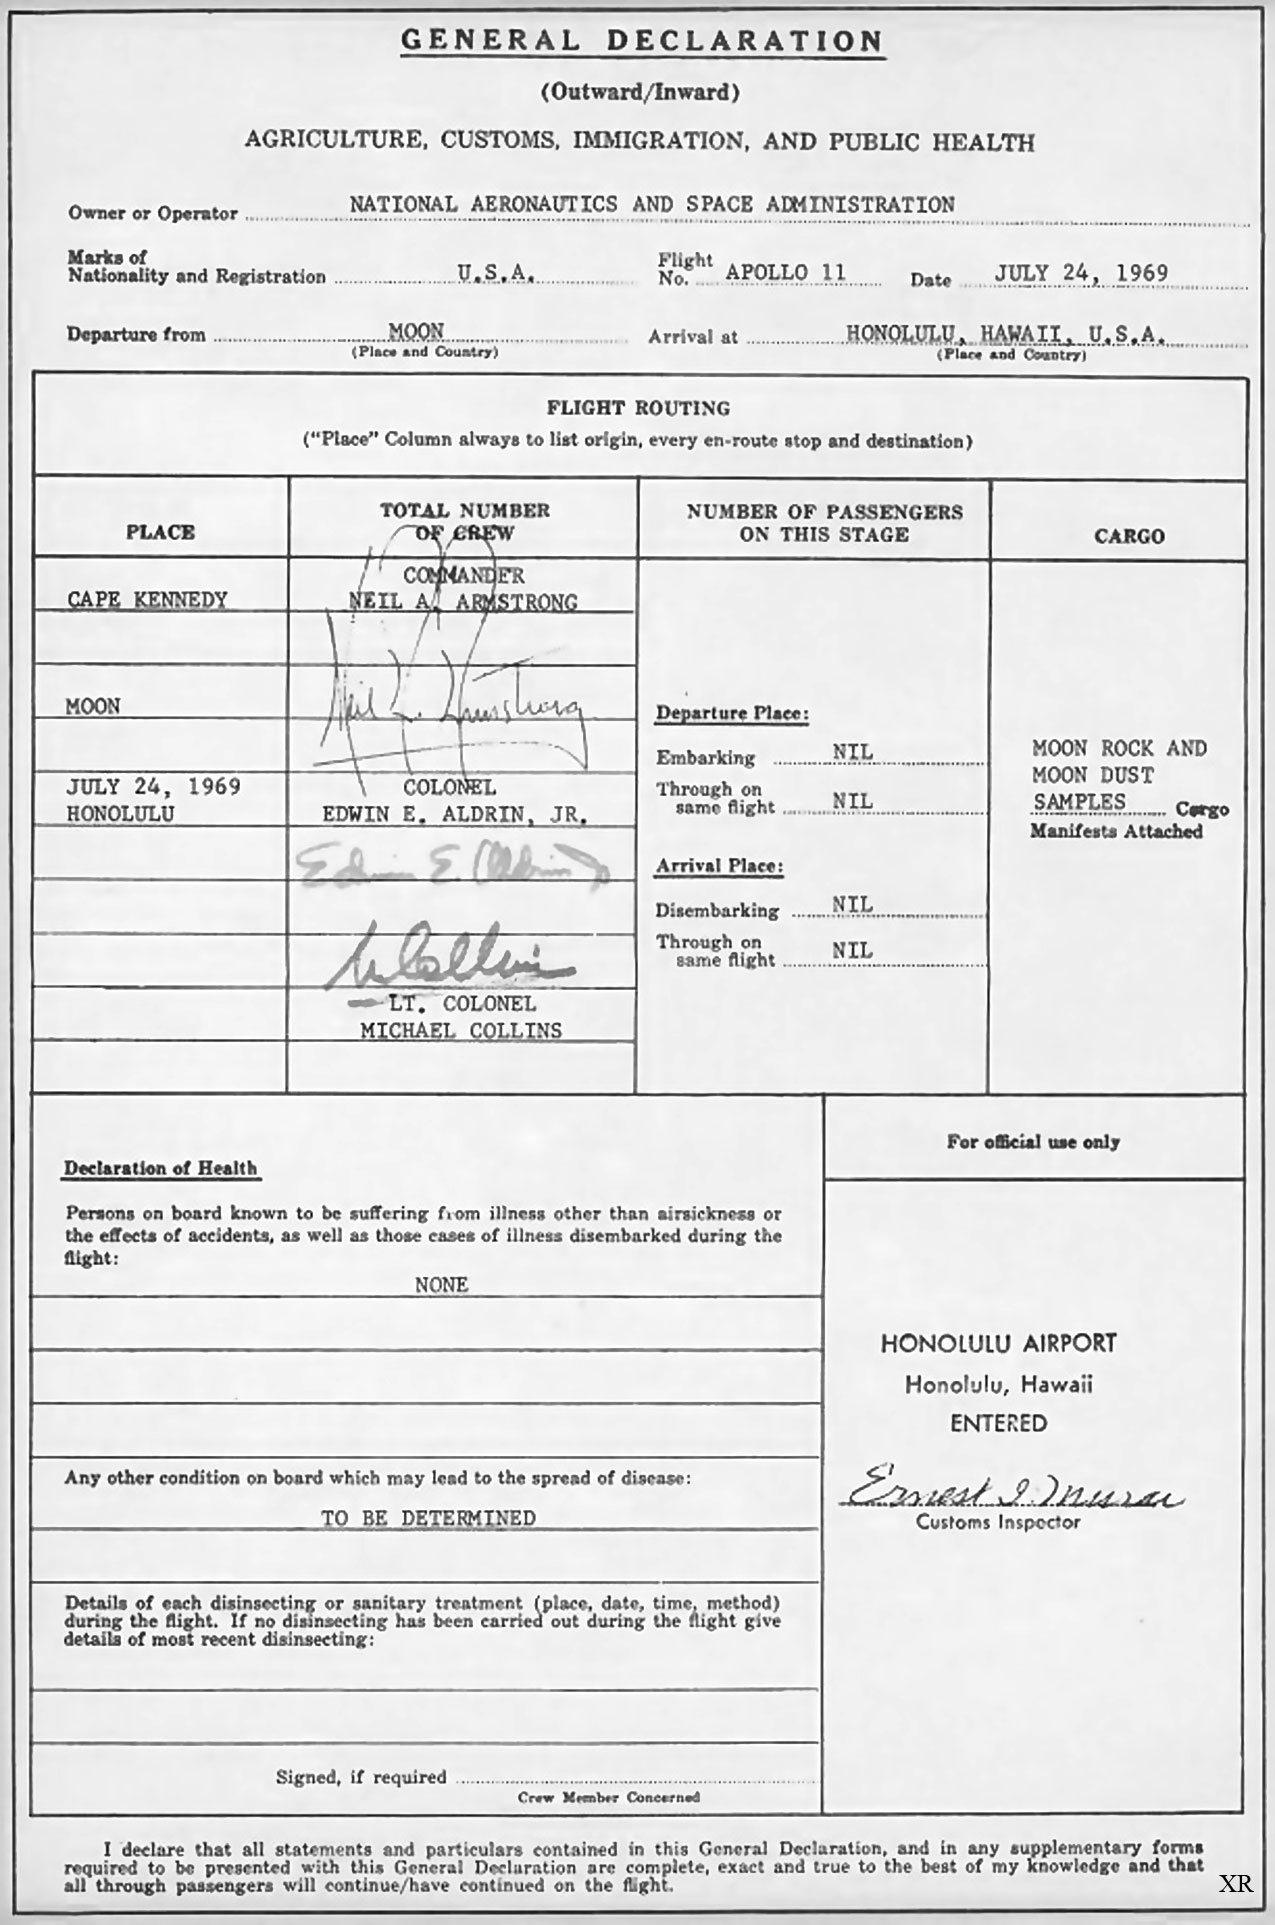 GENERAL DECLARATION
(Outward/Inward)
AGRICULTURE, CUSTOMS, IMMIGRATION, AND PUBLIC HEALTH
Owner or Operator NATIONAL AERONAUTICS AND SPACE ADMINISTRATION
Marks of
Nationality and Registration U.S.A.
Flight
No. APOLLO 11 Date JULY 24, 1969
Departure from MOON
(Place and Country)
Arrival at HONOLULU, HAWAII, U.S.A.
(Place and Country)
FLIGHT ROUTING
("Place" Column always to list origin, every en-route stop and destination)
PLACE
TOTAL NUMBER
OF CREW
NUMBER OF PASSENGERS
ON THIS STAGE
CARGO
CAPE KENNEDY
MOON
JULY 24, 1969
HONOLULU
COMMANDER
NEIL A. ARMSTRONG
Neil A. Armstrong
COLONEL
EDWIN E. ALDRIN, JR.
Edwin E. Aldrin Jr
M Collins
LT. COLONEL
MICHAEL COLLINS
Departure Place:
Embarking NIL
Through on
same flight NIL
Arrival Place:
Disembarking NIL
Through on
same flight NIL
MOON ROCK AND
MOON DUST
SAMPLES Cargo
Manifests Attached
Declaration of Health
Persons on board known to be suffering from illness other than airsickness or
the effects of accidents, as well as those cases of illness disembarked during the
flight:
NONE
Any other condition on board which may lead to the spread of disease:
TO BE DETERMINED
Details of each disinsecting or sanitary treatment (place, date, time, method)
during the flight. If no disinsecting has been carried out during the flight give
details of most recent disinsecting:
Signed, if required
Crew Member Concerned
For official use only
HONOLULU AIRPORT
Honolulu, Hawaii
ENTERED
Ernest I. Murai
Customs Inspector
I declare that all statements and particulars contained in this General Declaration, and in any supplementary forms
required to be presented with this General Declaration are complete, exact and true to the best of my knowledge and that
all through passengers will continue/have continued on the flight.
XR